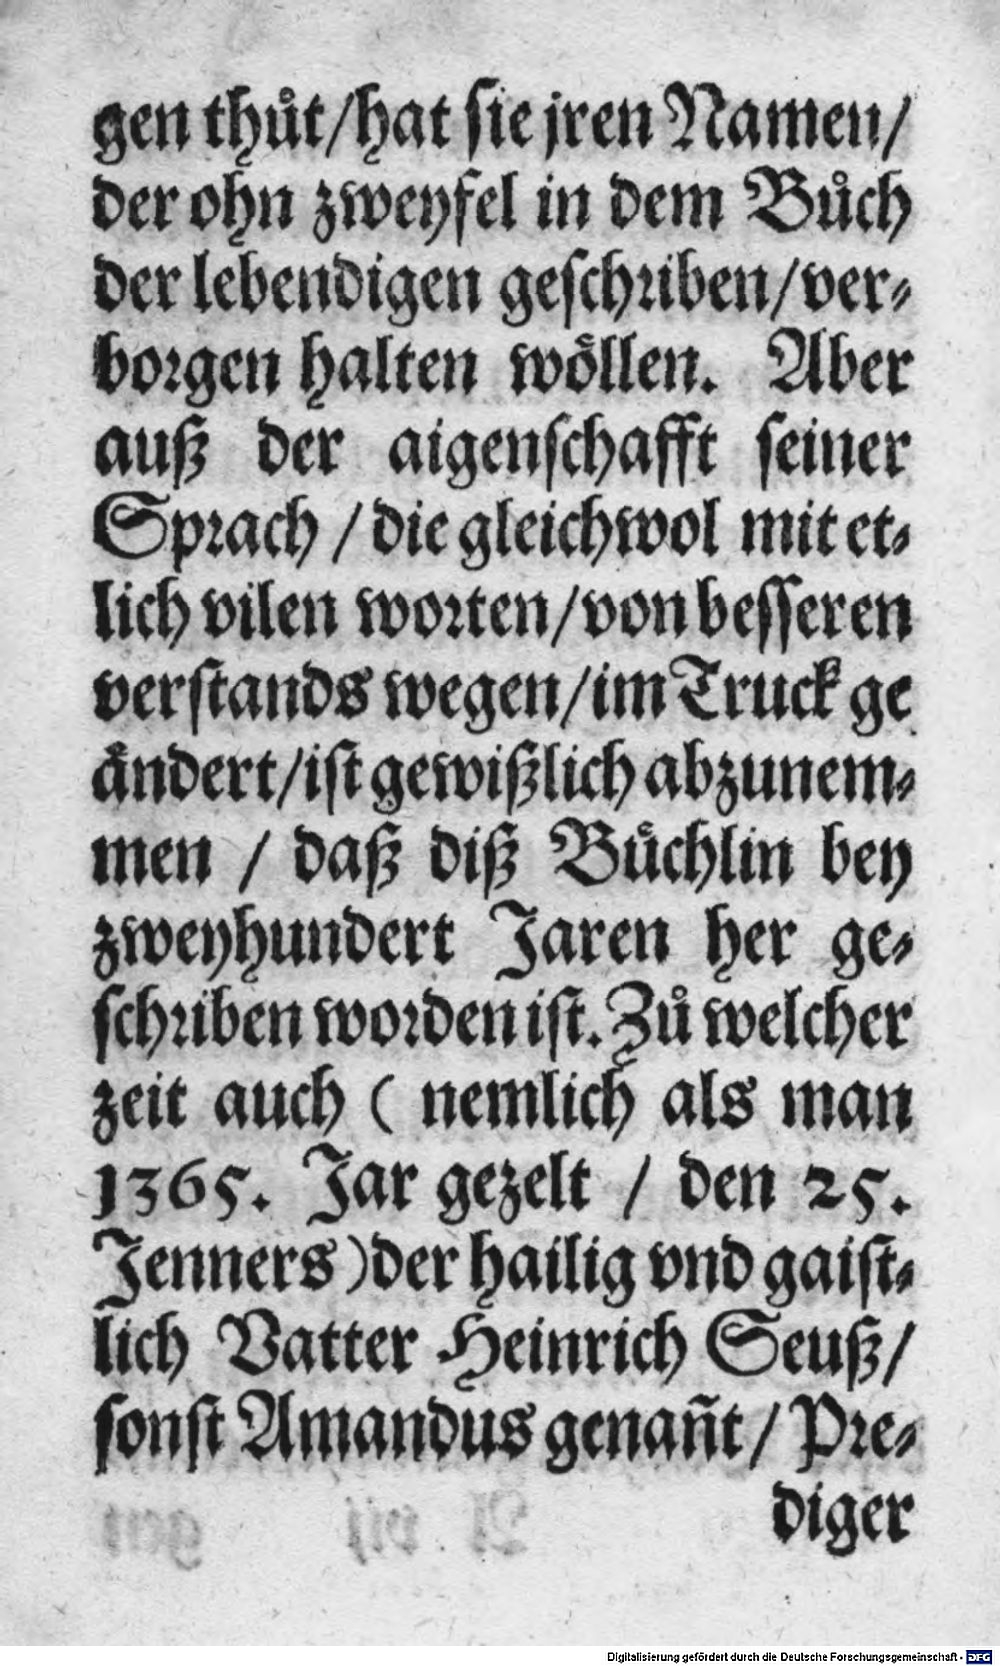 gen thůt/hat sie jren Namen/
der ohn zweyfel in dem Bůch
der lebendigen geschriben/ver⸗
borgen halten woͤllen. Aber
auß der aigenschafft seiner
Sprach / die gleichwol mit et⸗
lich vilen worten/von besseren
verstands wegen/im Truck ge
aͤndert/ist gewißlich abzunem⸗
men / daß diß Buͤchlin bey
zweyhundert Jaren her ge⸗
schriben worden ist. Zů welcher
zeit auch ( nemlich als man
1365. Jar gezelt / den 25.
Jenners) der hailig vnd gaist⸗
lich Vatter Heinrich Seuß/
sonst Amandus genañt/ Pre⸗
diger
Digitalisierung gefördert durch die Deutsche Forschungsgemeinschaft - DFG